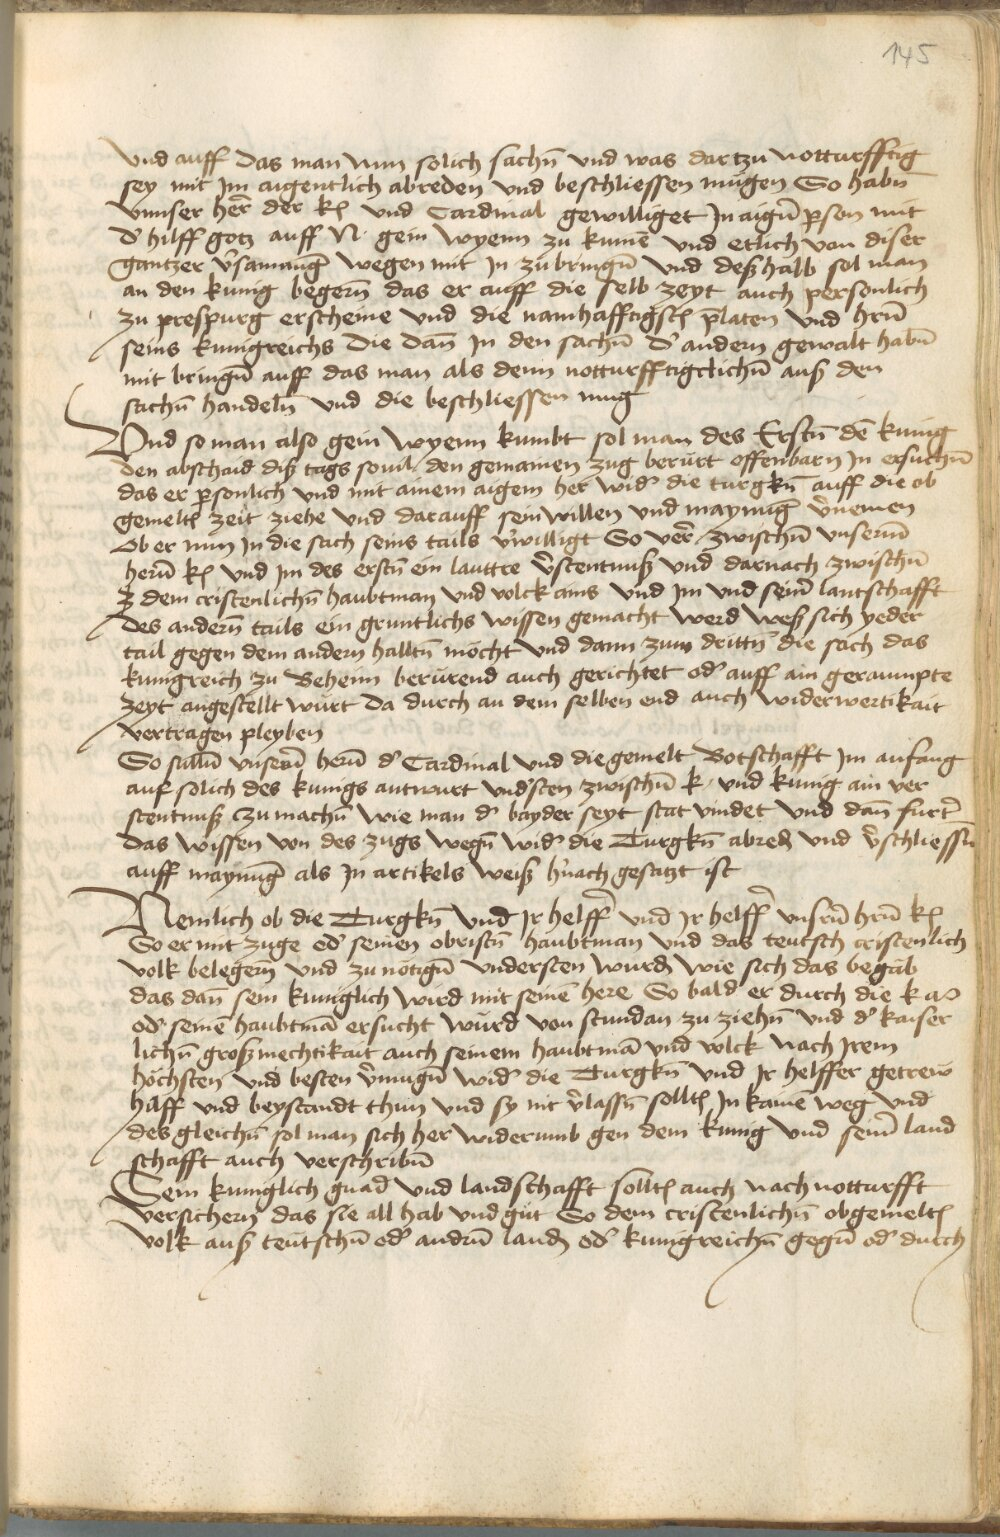 145
Und auff das man nun solich sachn̄ und was dartzu notturfftig
sey mit Im aigentlich abreden und beschliessen mugen So habn̄
unnser her̄ der k und Cardinal gewilliget In aign̄ pson mit
d' hilff gotz auff N. gein wyenn zu kumē und etlich von diser
gantzer v̄samang wegen mit In zubringn̄ und deßhalb sol man
an den kunig begern̄ das er auff die selb zeyt auch personlich
zu prespurg erscheine und die namhafftigstn̄ platen und hrn̄
seins kunigreichs die dan̄ In den sachn̄ d' andern gewalt habn̄
mit bringn̄ auff das man als denn notturfftigclichn̄ auß den
sachn̄ handeln̄ und die beschliessen mug
Und so man also gein wyenn kumbt sol man des Erstn̄ dē kunig
den abschaid diß tags souil den gemainen zug berürt offenbarn In ersuchn̄
das er psonlich und mit ainem aigem her wid' die turgkn̄ auff die ob
gemelte zeit ziehe und darauff sein willen und maynung v̄nemen
Ob er nun In die sach seins tails v̄willigt So ver̄ zwischn̄ unserm̄
hern̄ k und Im des erstn̄ ein lauttre v̄stentnuß und darnach zwischn̄
dem cristenlichn̄ haubtman und volck ains und Im und seinr̄ lantschafft
des andern̄ tails ein gruntlichs wissen gemacht werd weß sich yeder
tail gegen dem andern halltn̄ möcht und dann zum drittn̄ die sach das
kunigreich zu Beheim berürend auch gerichtet od' auff ain geraumpte
zeyt angestellt würt da durch an dem selben end auch widerwertikait
vertragen pleyben
So sulln̄ unserm̄ hern̄ d' Cardinal und die gemelt Botschafft Im anfang
auf solich des kunigs antwurt und'sten zwischn̄ k. und kunig ain ver
stentnuß zu machn̄ wie man d' bayder seyt stat vindet und dan̄ furt'
das wissen von des zugs wegn̄ wid' die Turgkn̄ abredn̄ und v̄schliessn̄
auff maynung als In artikels weiß h'nach gesatzt ist
Nemlich ob die Turgkn̄ und Ir helff' und Ir helff' unsrn̄ hrn̄ k
So er mit zuge od' seinen obristn̄ haubtman und das teutsch cristenlich
volk belegern̄ und zu nötign̄ understen wurdn̄ wie sich das begäb
das dan̄ sein kuniglich wird mit seinē here So bald er durch die k
od' seinē haubtmā ersucht würd von stundan zu ziehn̄ und d' kaiser
lichn̄ großmechtikait auch seinem haubtmā und volck nach Irem
höchsten und besten v̄mugn̄ wid' die Turgkn̄ und Ir helffer getrew
hilff und beystandt thun und sy nit v̄lassn̄ sollte In kainē weg und
des gleichn̄ sol man sich her widerumb gen dem kunig und seinr̄ land
schafft auch verschribn̄
Sein kuniglich gnad und landschafft sollte auch nach notturfft
versichern̄ das sie all hab und gut So dem cristenlichn̄ obgemelte
volk auß teutschn̄ od' andrn̄ landn̄ od' kunigreichn̄ gegn̄ od' durch